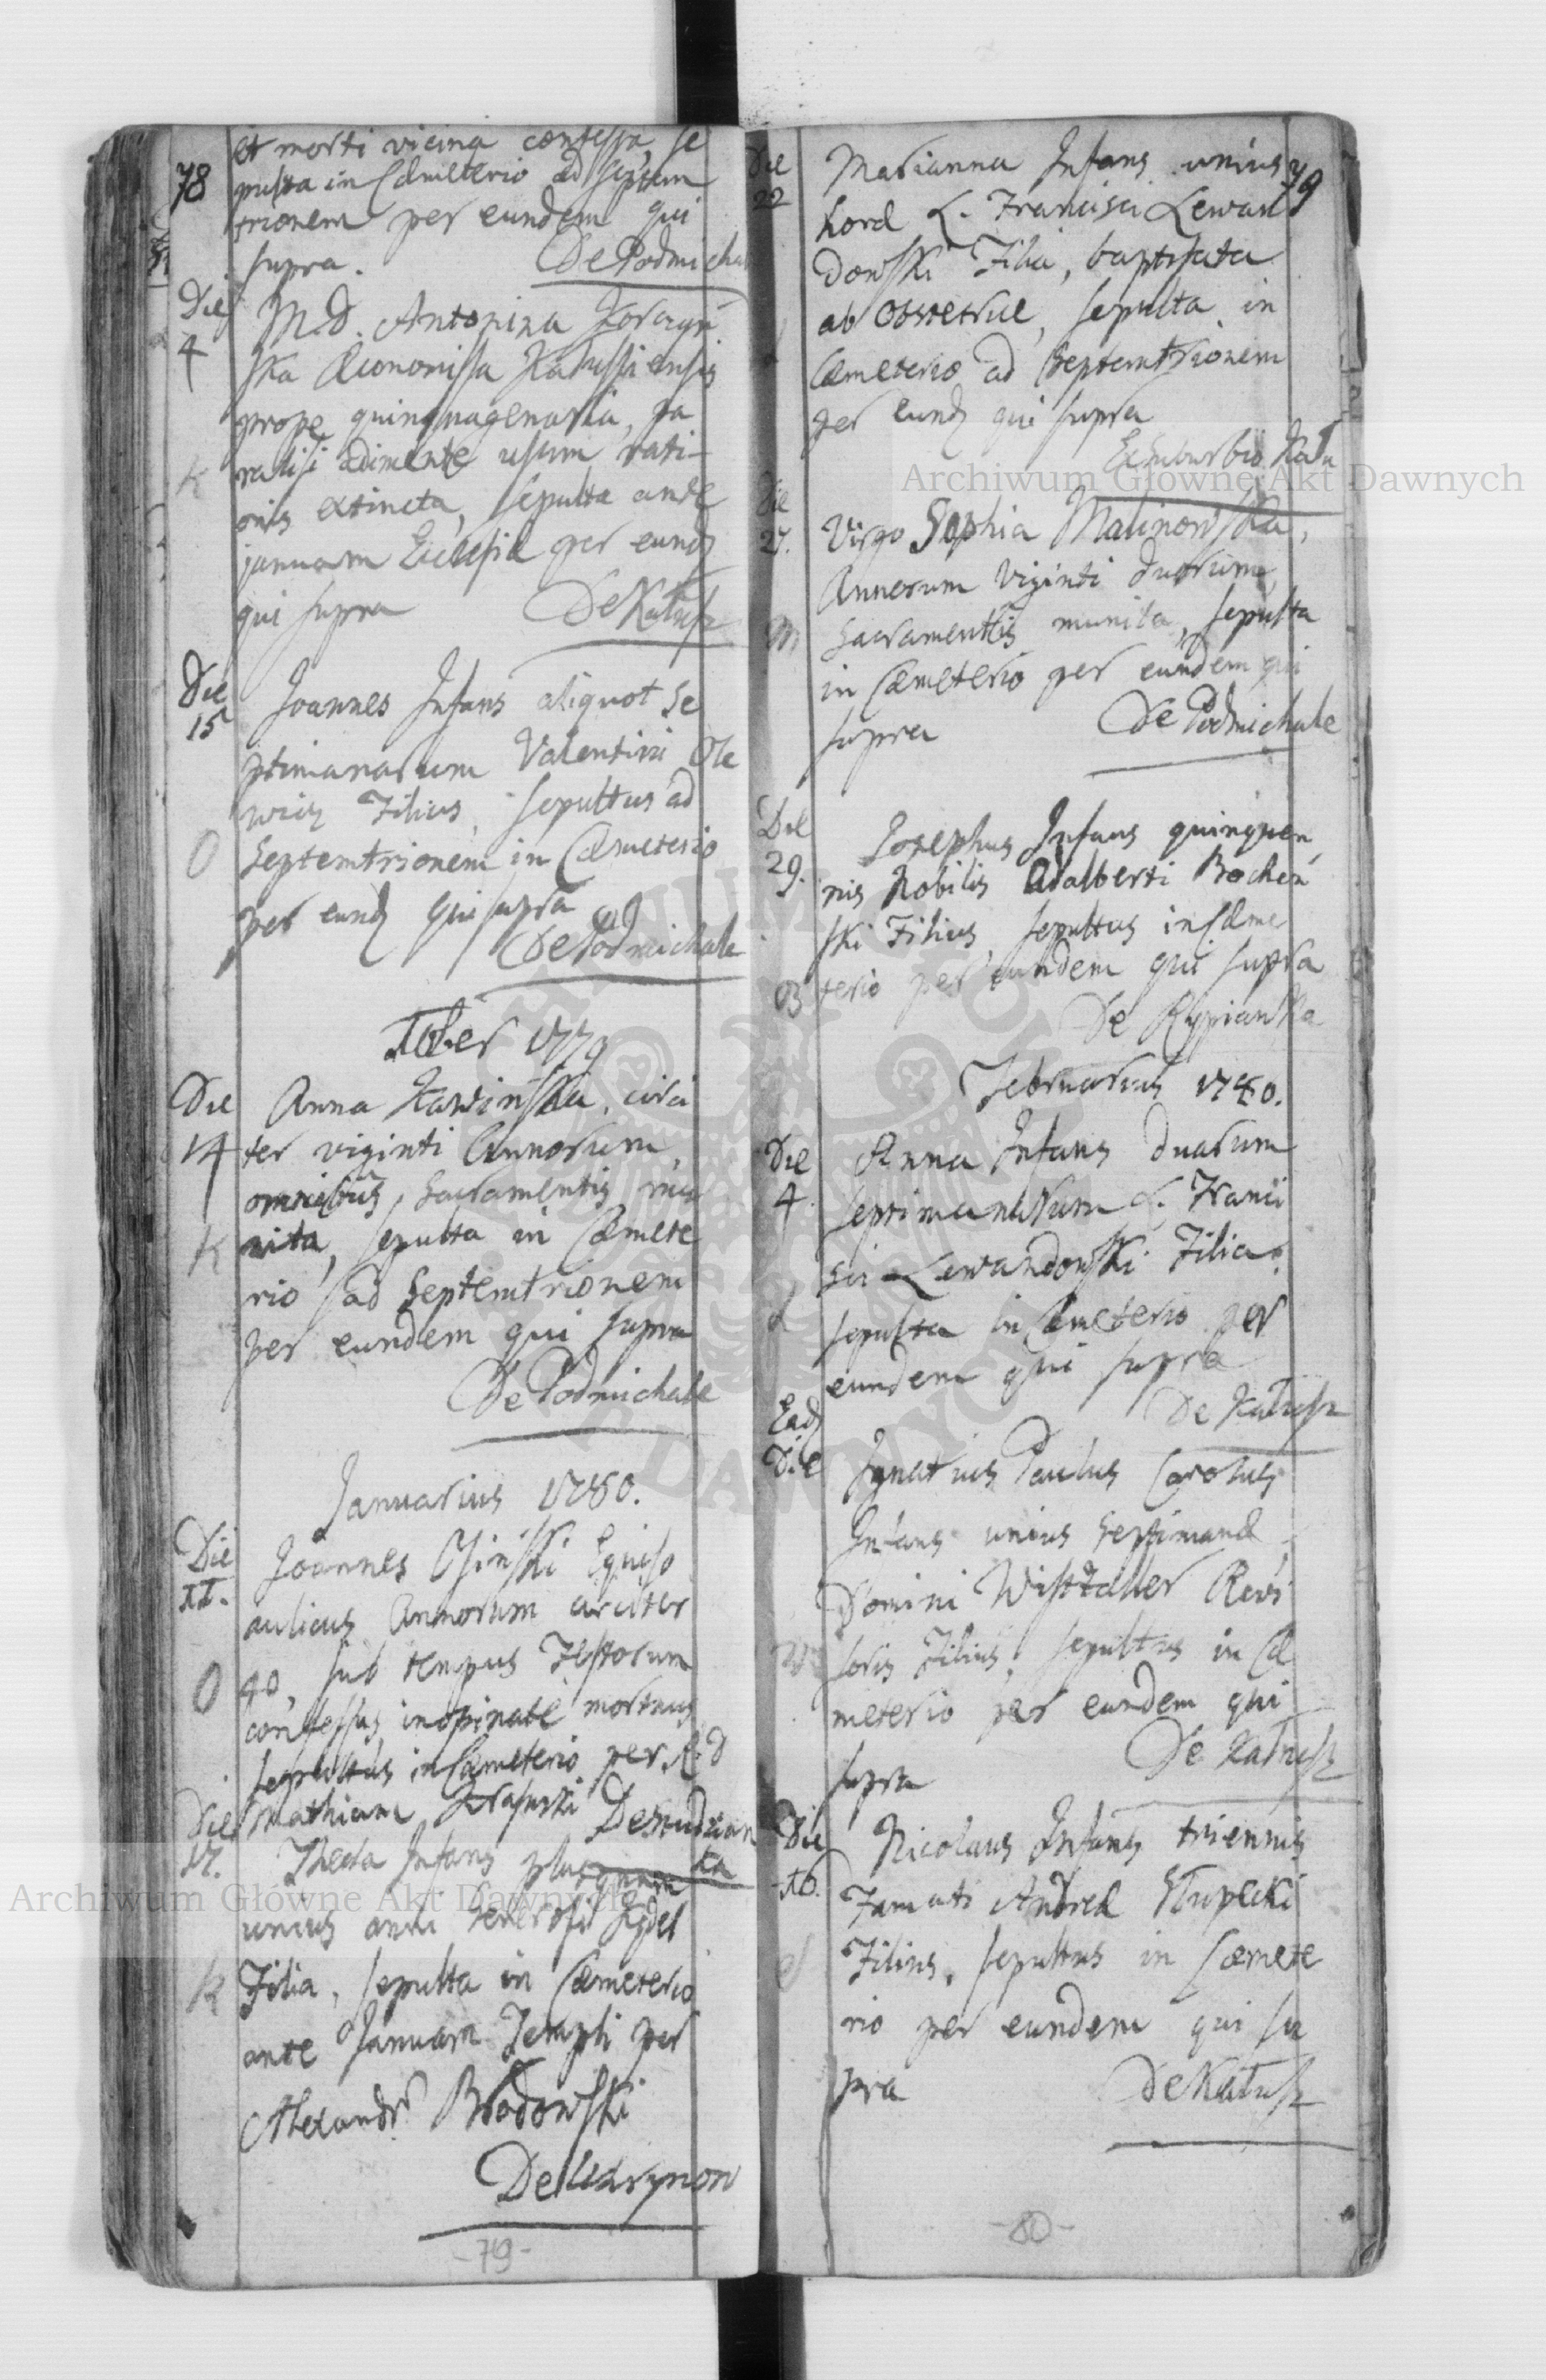 78
et morti vicina confessa, se
pulta in Cæmeterio ad Septem
trionem per eundem qui
supra.
De Podmichal
Die
4
M. D. Antonina
ska Æconomissa Kałussiensis
prope quinquagenaria, pa
ralisi adimente usum rati-
onis extincta, sepulta ante
K
januam Ecclesiæ per eund
qui supra
De Kałusz
Die
15
Joannes Infans aliquot Se
ptimanarum Valentini Ole
wicz Filius, sepultus ad
O
Septemtrionem in Cæmeterio
per eund qui supra
De Podmichale
Xber 1779
Die
14
Anna Kawinska, circi
ter viginti Annorum,
omnibus Sacramentis mu
K
nita, sepulta in Cæmete
rio ad Septemtrionem
per eundem qui supra
De Podmichale
Januarius 1780.
Die
11.
Joannes Osinski Equiso
aulicus Annorum circiter
O
40, sub tempus Festorum
confessus, inopinatè mortuus
sepultus in Cæmeterio per R. D
Mathiam
Die
17.
Thecla Infans plusquam
unius anni Generosi
K
Filia, sepulta in Cæmeterio
ante Januam Templi per
Alexandr Brodowski
De
-79-
79
Die
22
Marianna Infans unius
horæ L. Francisci Lewan
dowski Filia, baptisata
ab Obstetrice, sepulta in
Cæmeterio ad Septemtrionem
per eund qui supra
Ex suburbio Kału
Die
27.
Virgo Sophia Malinowska,
Annorum Viginti duorum,
M
Sacramentis munita, sepulta
in Cæmeterio per eundem qui
supra
De Podmichale
Die
29.
Josephus Infans quinquen
nis Nobilis Adalberti Bochen
ski Filius, sepultus in Cæme
B
terio per eundem qui supra
De Kypianka
Februarius 1780.
Die
4.
Anna Infans duarum
septimanarum L. Franci
sci Lewandowski Filia,
L
sepulta in Cæmeterio per
eundem qui supra
De Kałusz
Ead
Die
Ignatius Paulus Carolus
Infans unius Septimanæ
Domini Revi
W
soris Filius, sepultus in Cæ
meterio per eundem qui
supra
De Kałusz
Die
16.
Nicolaus Infans triennis
Famati Andreæ Słupecki
S
Filius, sepultus in Cæmete
rio per eundem qui su
pra
De Kałusz
-80-
Archiwum Główne Akt Dawnych
Archiwum Główne Akt Dawnych